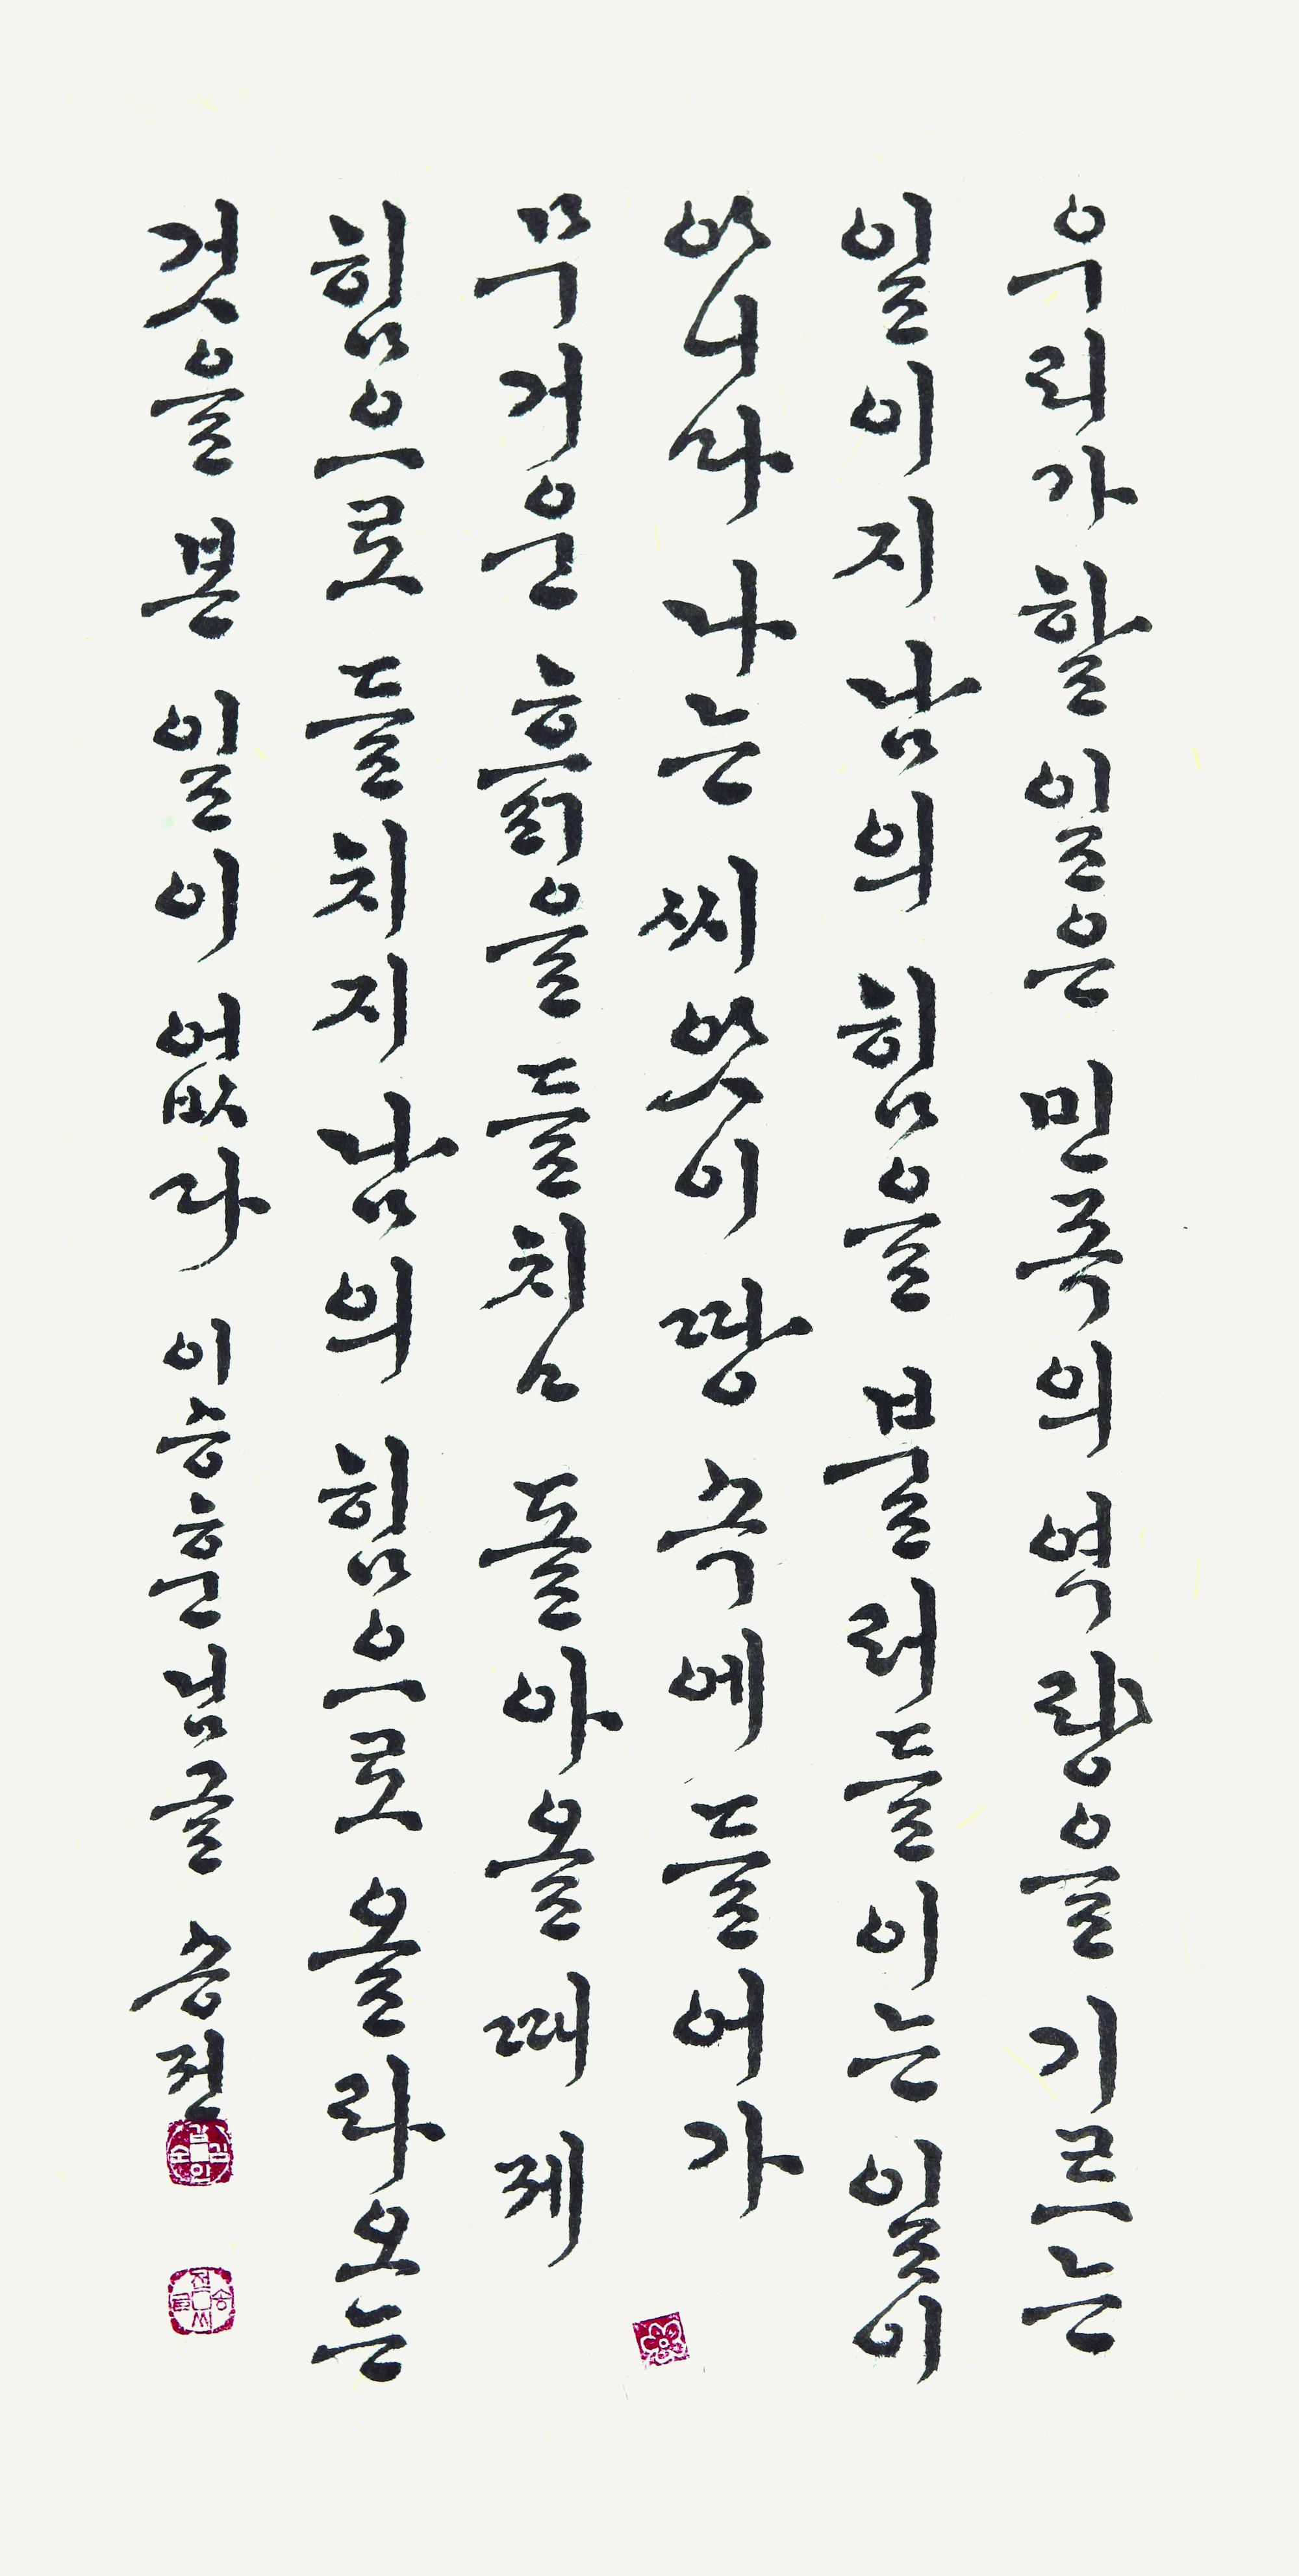 우리가 할 일은 민족의 역량을 기르는
일이지 남의 힘을 불러들이는 일이
아니라 나는 씨앗이 땅 속에 들어가
무거운 흙을 돌아올 때 제
힘으로 들치지 남의 힘으로 올라오는
것을 본 일이 없다 이승훈님글 송전